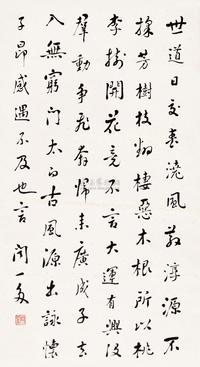 世道日交喪澆風散淳源不
採芳樹枝翻棲惡木根所以桃
李樹開花竟不言大運有興沒
羣動爭飛奔歸来廣成子去
入無窮門太白古風源出詠懷
子昂感遇不及也言 聞一多